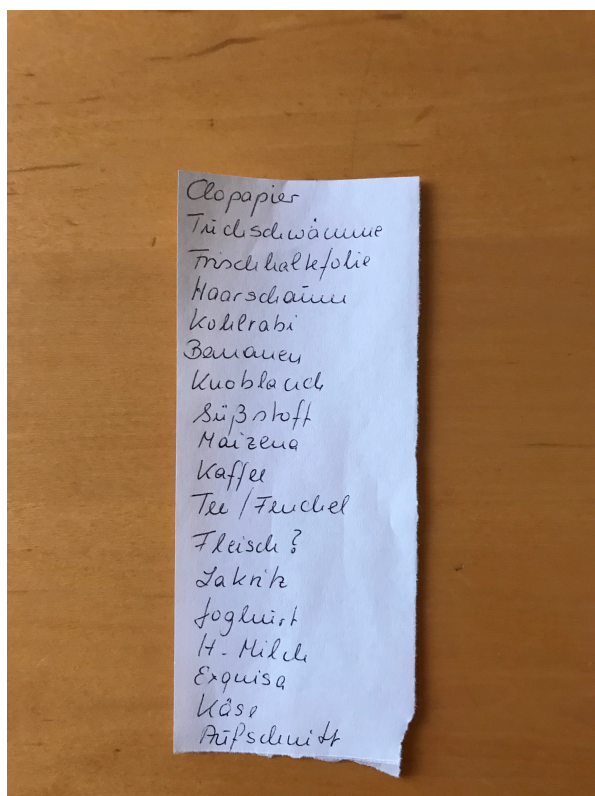 Clopapier
Tuchschwämme
Frischhaltefolie
Haarschaum
Kohlrabi
Bananen
Knoblauch
Süßstoff
Maizena
Kaffee
Tee / Fenchel
Fleisch?
Lakritz
Joghurt
H-Milch
Exquisa
Käse
Aufschnitt